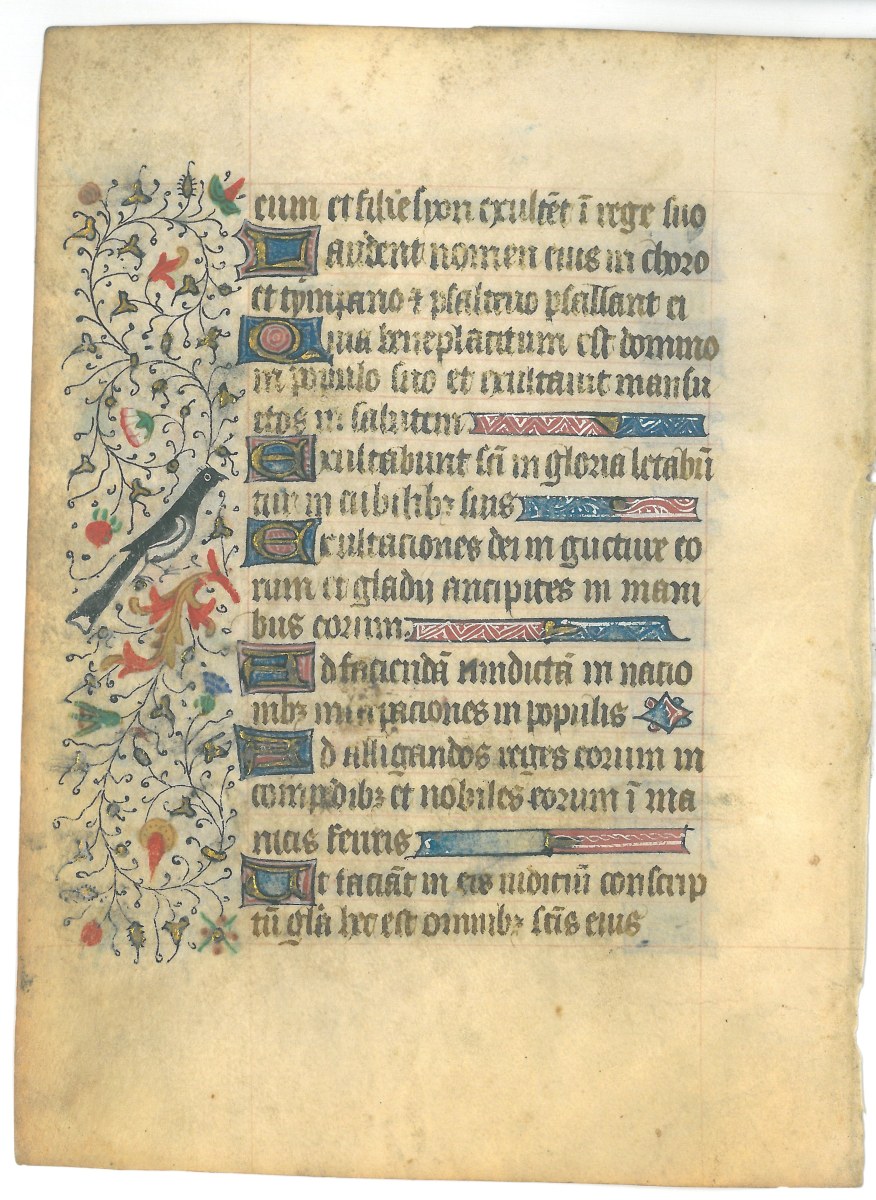 eum et filie syon exultēt ī rege suo
Laudent nomen eius in choro
et tympano ⁊ psalterio psallant ei
Quia beneplacitum est domino
in populo suo et exultauit mansu
etos in salutem
Exultabunt sc̄i in gloria letabūn
tur in cubilibꝫ suis
Exultaciones dei in gucture eo
rum et gladij ancipites in mani
bus eorum
Ad faciendā vindictā in nacio
nibꝫ increpaciones in populis
Ad alligandos reges eorum in
compedibꝫ et nobiles eorum ī ma
nicis ferreis
Ut faciāt in eis iudiciū conscrip
tū gl̄a hec est omnibꝫ sc̄is eius